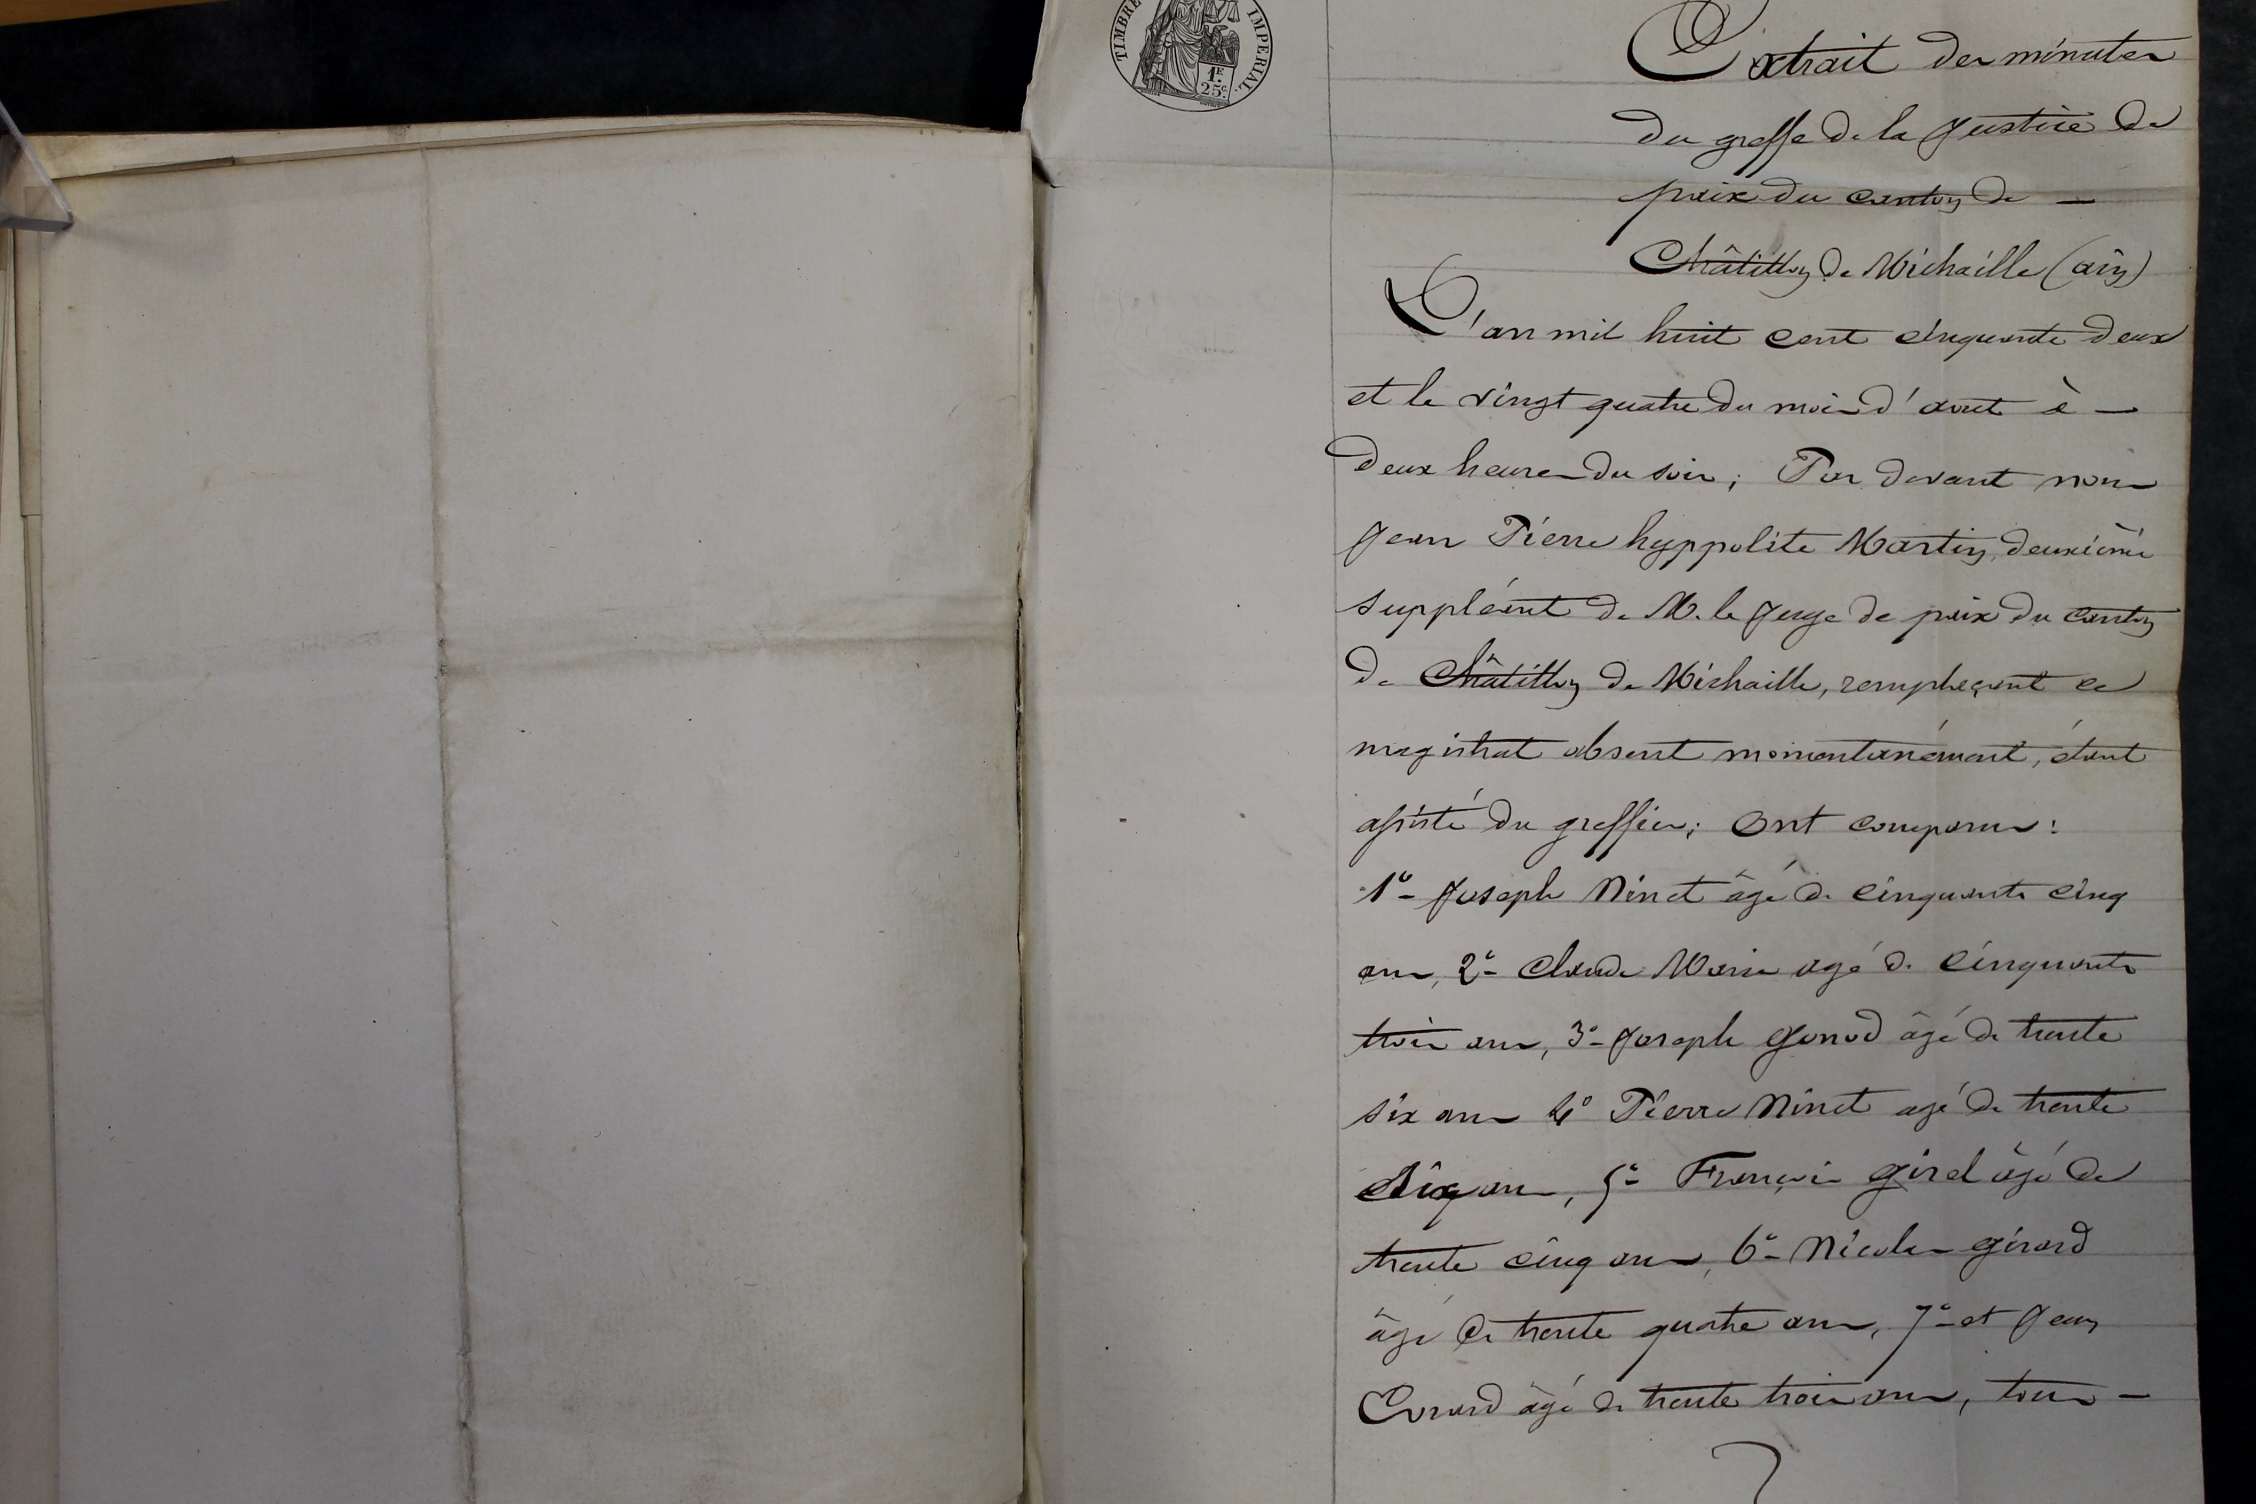 TIMBRE IMPERIAL.
1F.
25c.
Extrait des minutes
du greffe de la Justice de
paix du canton de —
Châtillon de Michaille (ain)
L'an mil huit cent cinquante deux
et le vingt quatre du mois d'aout à —
deux heures du soir; Par devant nous
Jean Pierre hyppolite Martin, deuxième
suppléant de M. le Juge de paix du canton
de Châtillon de Michaille, remplaçant ce
magistrat absent momentanément, étant
assisté du greffier; Ont comparus:
1° - Joseph Ninet âgé de cinquante cinq
ans, 2° - Claude Marie agé de cinquante
trois ans, 3° - Joseph gonod âgé de trente
six ans 4° Pierre Ninet agé de trente
six ans, 5° - François girel âgé de
trente cinq ans, 6° - Nicolas girard
âgé de trente quatre ans, 7° - et Jean
Evrard âgé de trente trois ans, tous —